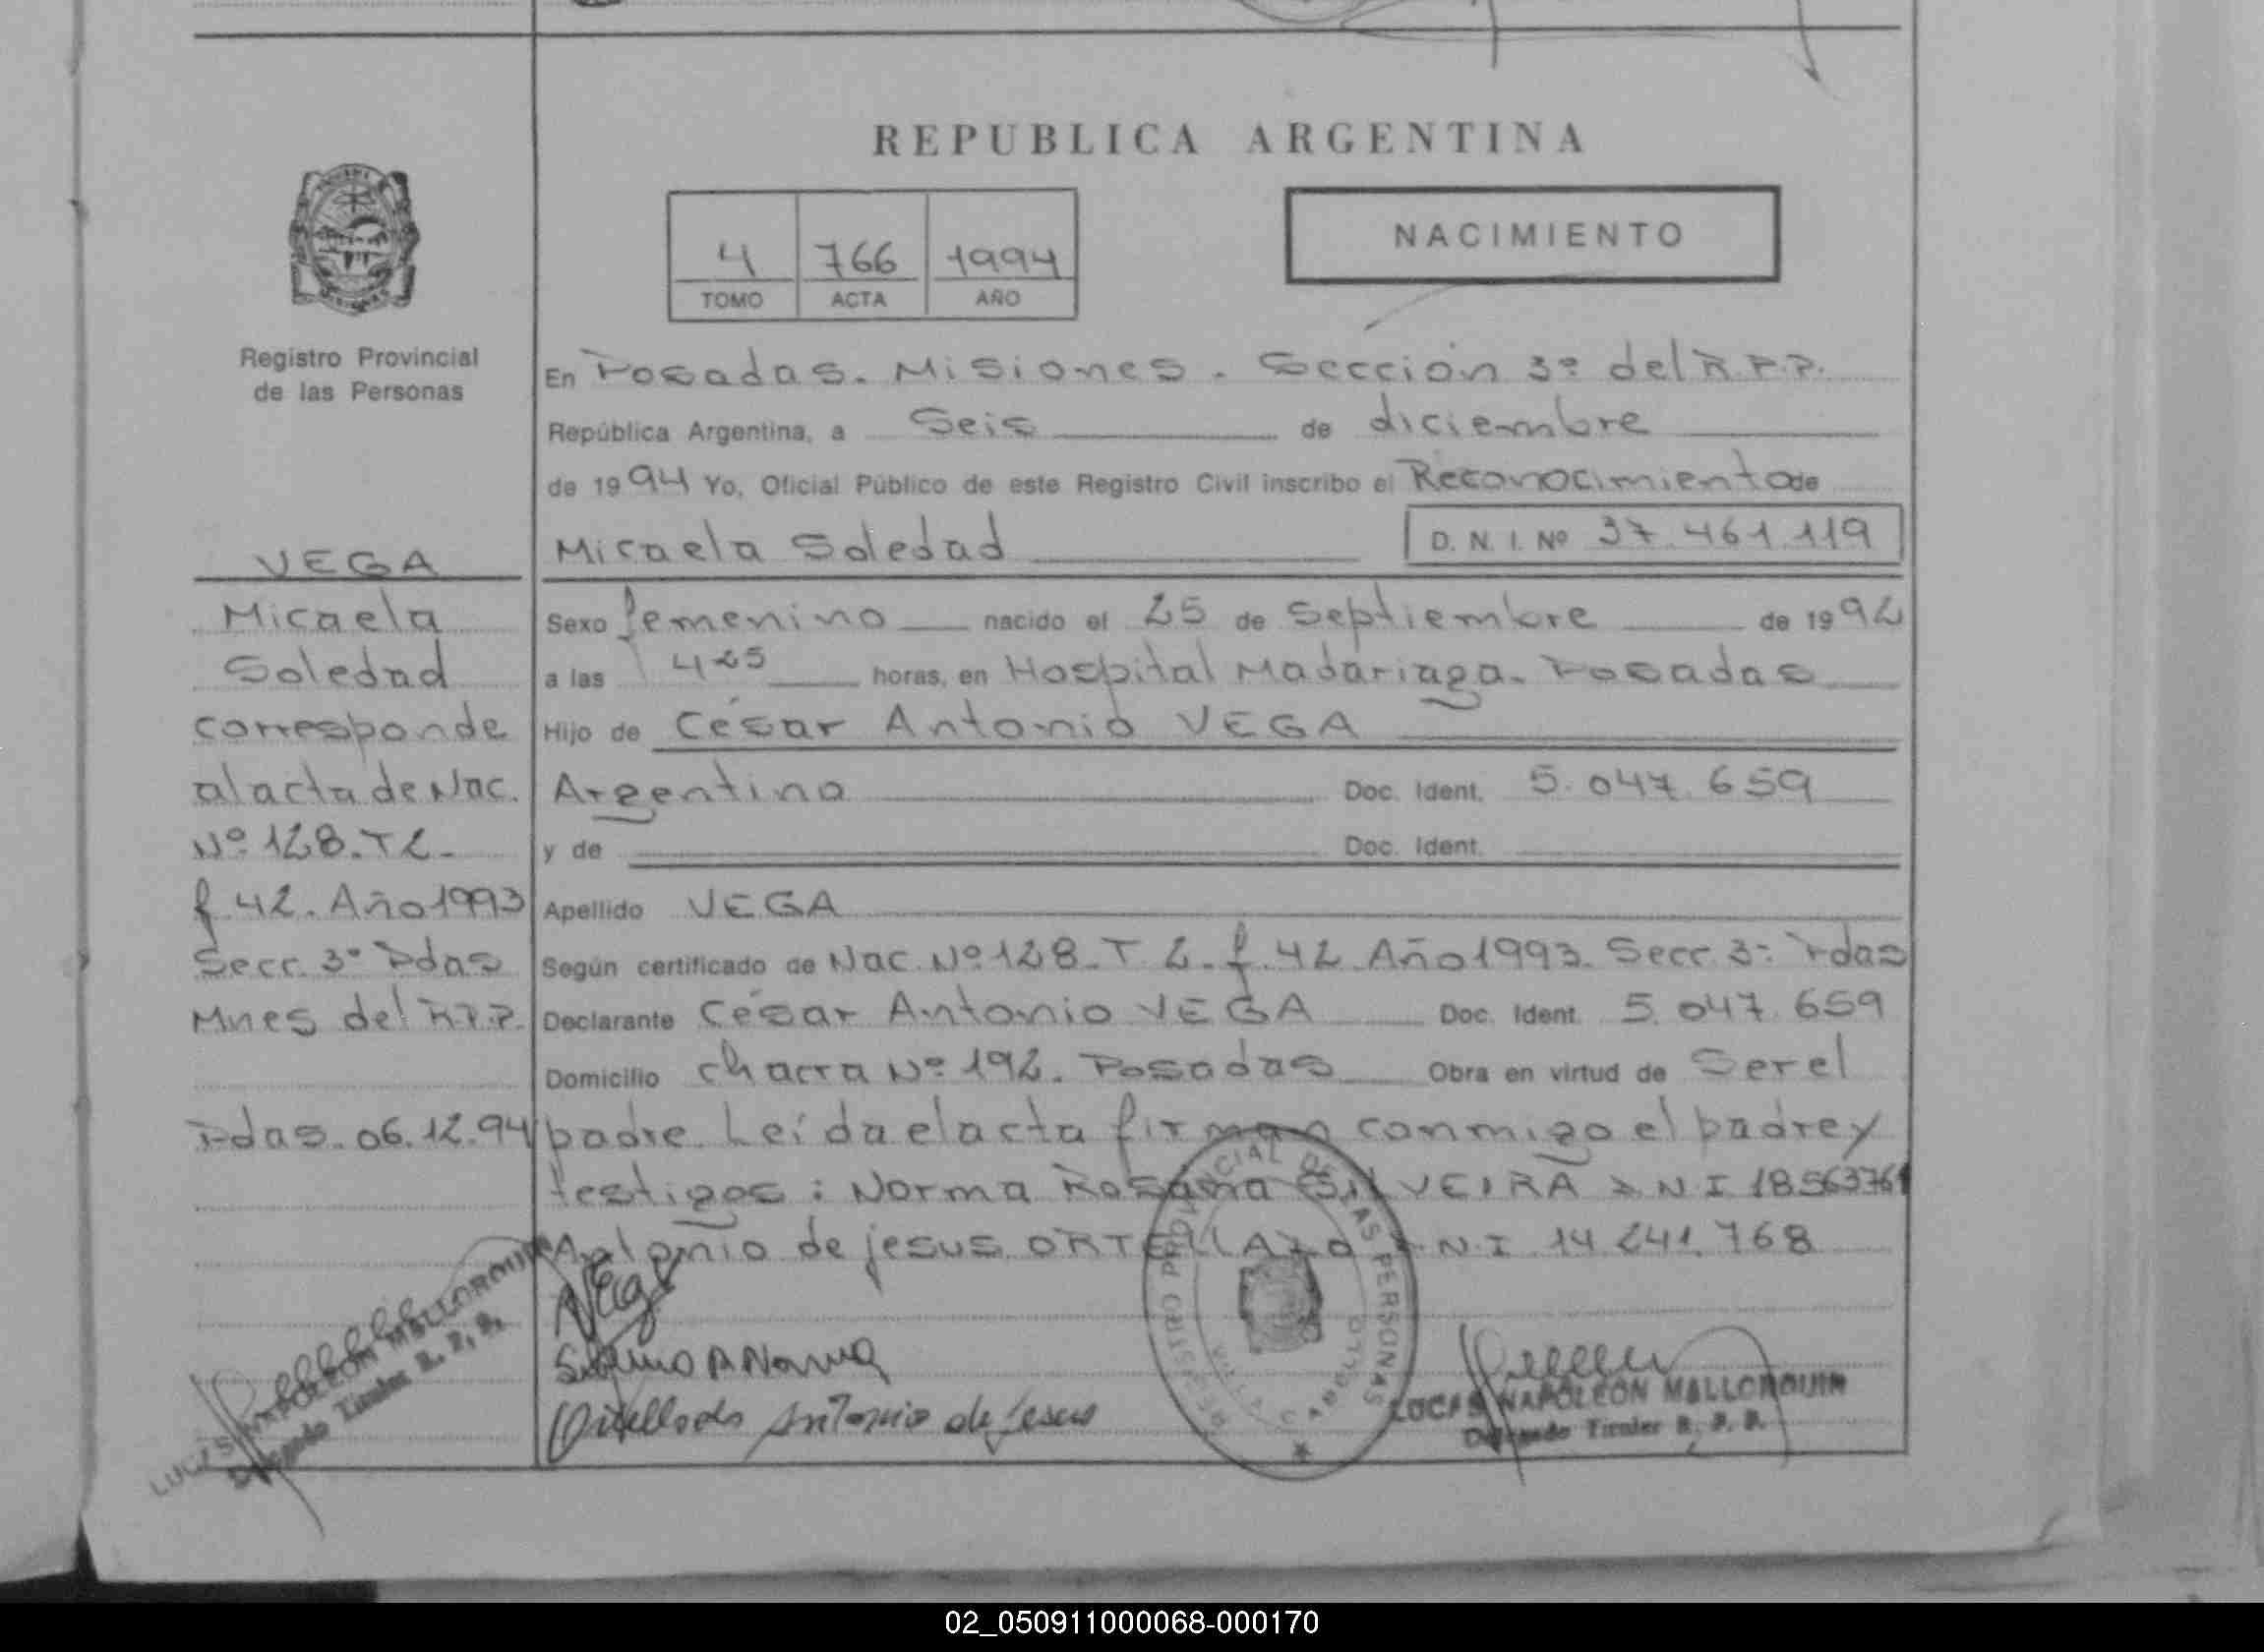 REPUBLICA ARGENTINA
4 766 1994
TOMO ACTA AÑO
NACIMIENTO
Registro Provincial
de las Personas
En Posadas. Misiones. Sección 3º del R.P.P.
República Argentina, a Seis de diciembre
de 1994 Yo, Oficial Público de este Registro Civil inscribo el Reconocimiento de
Micaela Soledad D. N. I. Nº 37.461.119
Sexo femenino nacido el 25 de Septiembre de 1992
a las 425 horas, en Hospital Madariaga. Posadas
Hijo de César Antonio VEGA
Argentino Doc. Ident. 5.047.659
y de Doc. Ident.
Apellido VEGA
Según certificado de Nac. Nº 128. T 2. f. 42 Año 1993. Secc. 3º Pdas
Declarante César Antonio VEGA Doc. Ident. 5.047.659
Domicilio chacra Nº 192. Posadas Obra en virtud de Ser el
padre. Leída el acta firman conmigo el padre y
testigos: Norma Rosana SILVEIRA D N I 18563761
Antonio de jesus ORTELLADO D.N.I 14.241.768
VEGA
Micaela
Soledad
corresponde
al acta de Nac.
Nº 128. T 2.
f 42. Año 1993
Secc. 3º Pdas
Mnes del R.P.P.
Pdas. 06.12.94
LUCAS NAPOLEON MALLORQUIN
Delegado Titular R. P. P.
Vega
Antonio de Jesus
REGISTRO PROVINCIAL DE LAS PERSONAS
LUCAS NAPOLEON MALLORQUIN
Delegado Titular R. P. P.
02_050911000068-000170